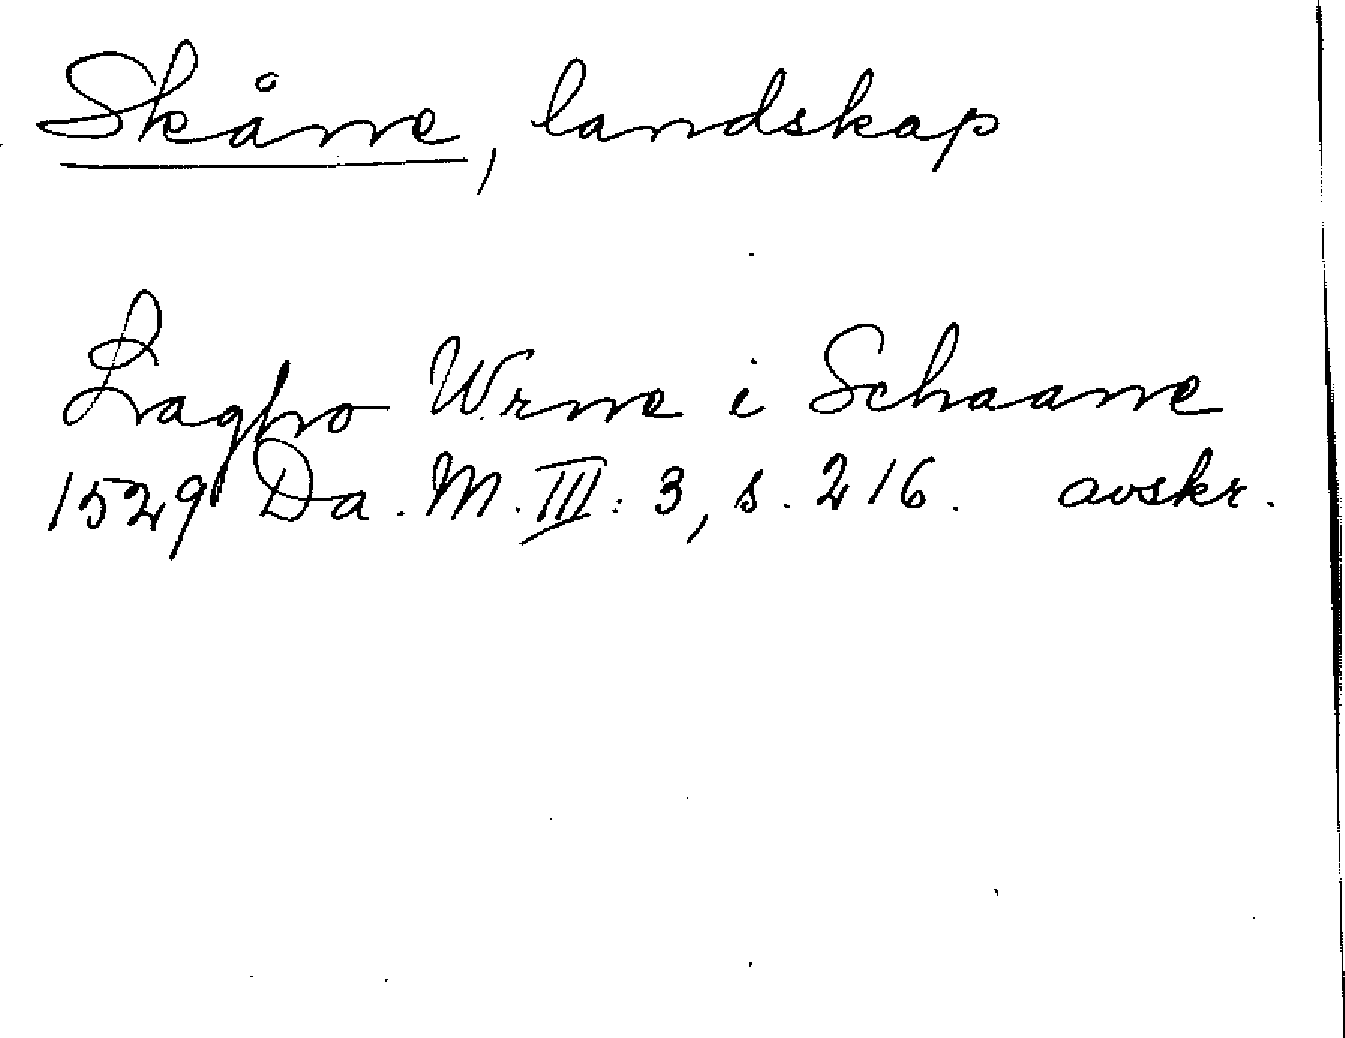 Skåne, landskap
Lagho Wrne i Schaane
1529 Da. M. III: 3, s. 216. avskr.